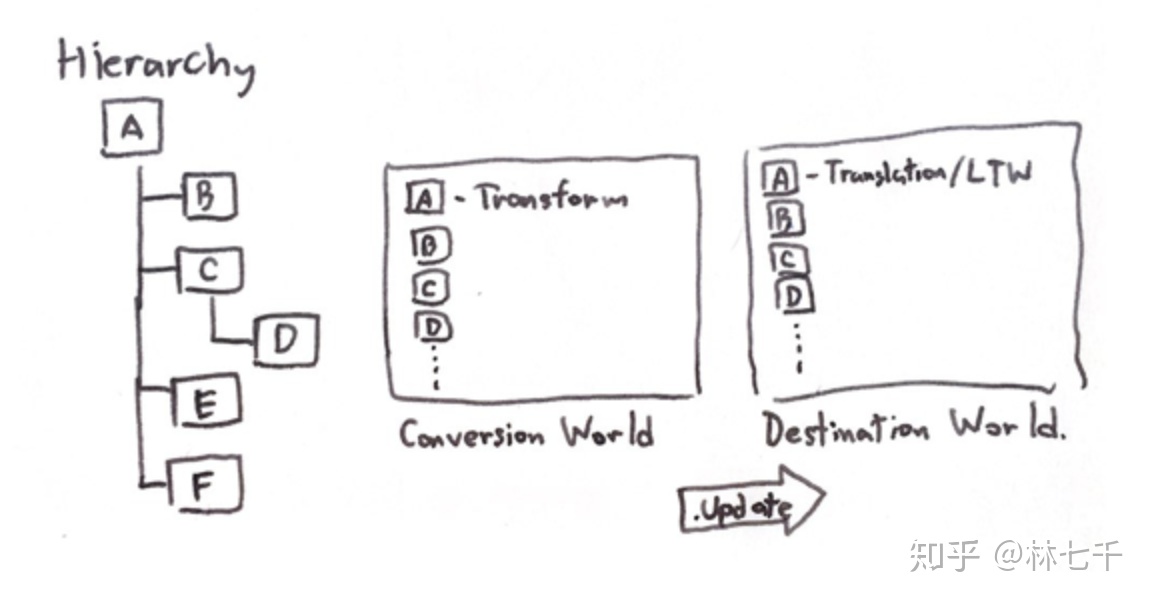 Hierarchy
A
B
C
D
E
F
A - Transform
B
C
D
Conversion World
A - Translation/LTW
B
C
D
Destination World.
.Update
知乎 @林七千